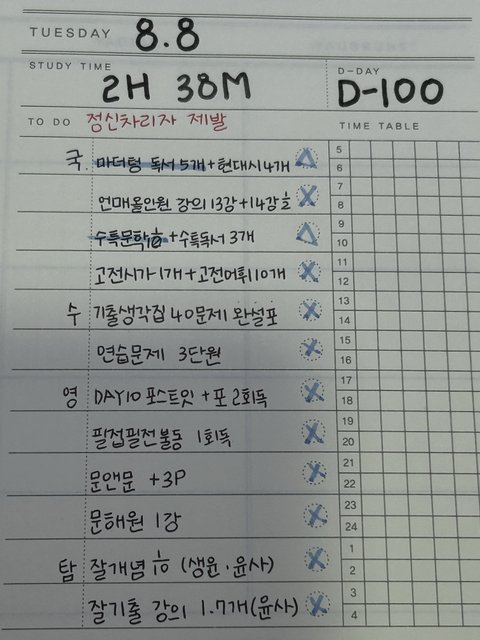 TUESDAY 8.8
STUDY TIME
2H 38M
D-DAY
D-100
TO DO 정신차리자 제발
TIME TABLE
국. 마더텅 독서 5개+현대시 4개
언매올인원 강의 13강+14강 1/2
수특문학 1/10 +수특독서 3개
고전시가 1개+고전어휘 110개
수 기출생각집 40문제 완설포
연습문제 3단원
영 DAY10 포스트잇 + 포 2회독
필접필전불동 1회독
문앤문 +3P
문해원 1강
탐 잘개념 1/10 (생윤·윤사)
잘기출 강의 1.7개(윤사)
5
6
7
8
9
10
11
12
13
14
15
16
17
18
19
20
21
22
23
24
1
2
3
4